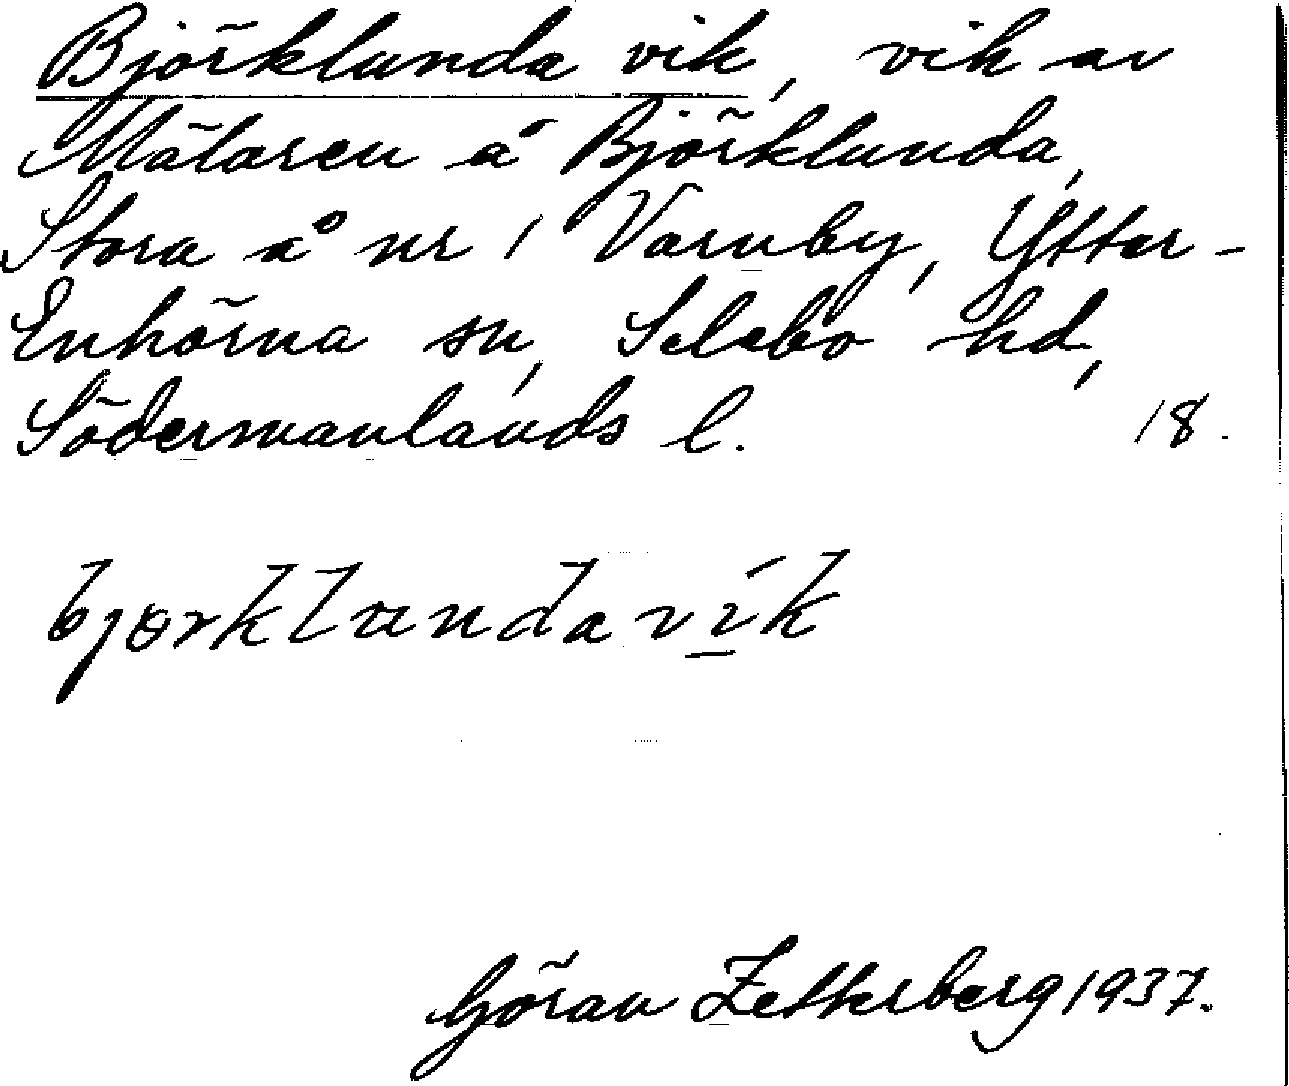 Björklunda vik, vik av
Mälaren å Björklunda,
Stora å nr 1 Varnby, Ytter-
Enhörna sn, Selebo hd,
Södermanlands l. 18.
bjɵrklundavik
Göran Zetterberg 1937.